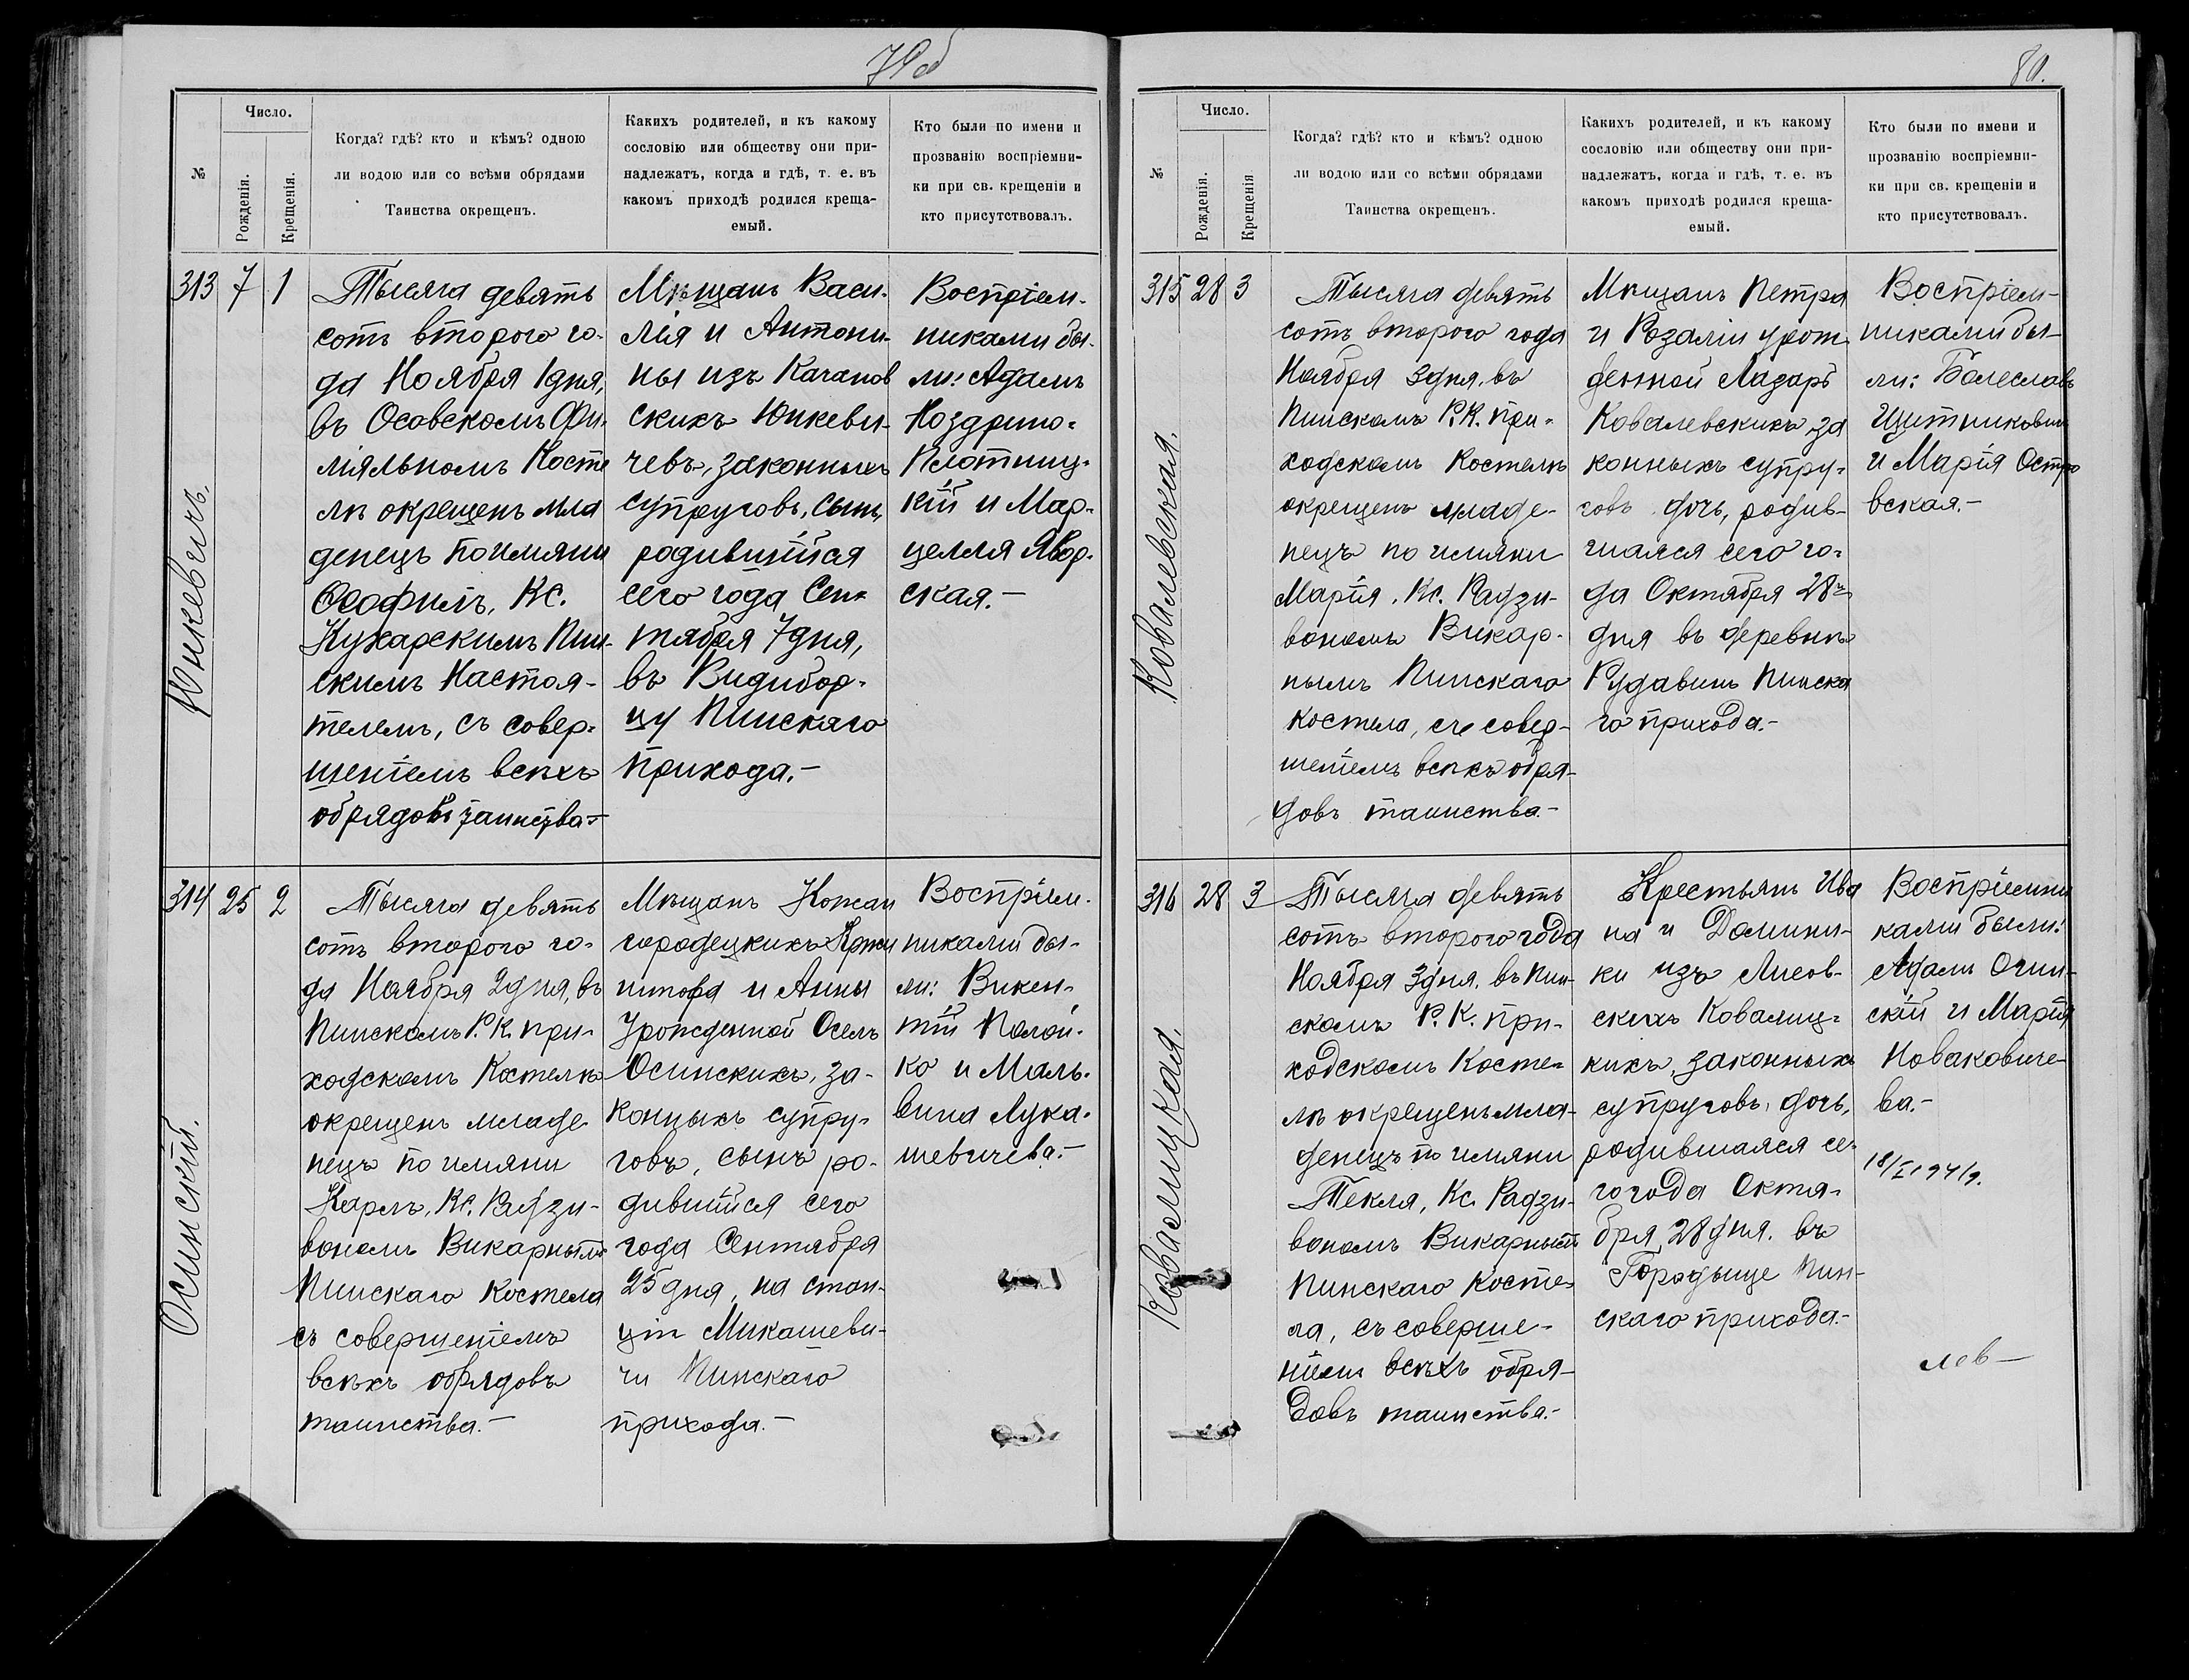 79об
№
Число.
Рожденія.
Крещенія.
Когда? гдѣ? кто и кѣмъ? одною
ли водою или со всѣми обрядами
Таинства окрещенъ.
Какихъ родителей, и къ какому
сословію или обществу они при-
надлежатъ, когда и гдѣ, т. е. въ
какомъ приходѣ родился креща-
емый.
Кто были по имени и
прозванію воспріемни-
ки при св. крещеніи и
кто присутствовалъ.
313 7 1
Юнкевичъ.
Тысяча девять
сотъ второго го-
да Ноября 1 дня,
въ Осовскомъ Фи-
ліяльномъ Косте
лѣ окрещенъ мла
денецъ по имяни
Ѳеофилъ, Кс.
Кухарскимъ Пин-
скимъ Настоя-
телемъ, съ совер-
шеніемъ всѣхъ
обрядовъ таинства.-
Мѣщанъ Васи-
лія и Антони-
ны изъ Качанов
скихъ Юнкеви-
чевъ, законныхъ
супруговъ, сынъ,
родившійся
сего года Сен-
тября 7 дня,
въ Видибор-
цу Пинскаго
прихода.-
Воспріем-
никами бы-
ли: Адамъ
Ноздрино-
Плотниц-
кій и Мар-
целля Явор-
ская.-
314 25 2
Осинскій.
Тысяча девять
сотъ второго го-
да Ноября 2 дня, въ
Пинскомъ Р. К. при-
ходскомъ Костелѣ
окрещенъ младе-
нецъ по имяни
Карлъ, Кс. Радзи-
вономъ Викарнымъ
Пинскаго Костела
съ совершеніемъ
всѣхъ обрядовъ
таинства.-
Мѣщанъ Кожан
городецкихъ Кржи
штофа и Анны
Урожденной Осель
Осинскихъ, за-
конныхъ супру-
говъ, сынъ ро-
дившійся сего
года Сентября
25 дня, на стан-
ціи Микашеви-
чи Пинскаго
прихода.-
Воспріем-
никами бы-
ли: Викен-
тій Полой-
ко и Маль-
вина Лука-
шевичева.-
80.
№
Число.
Рожденія.
Крещенія
Когда? гдѣ? кто и кѣмъ? одною
ли водою или со всѣми обрядами
Таинства окрещенъ.
Какихъ родителей, и къ какому
сословію или обществу они при-
надлежатъ, когда и гдѣ, т. е. въ
какомъ приходѣ родился креща-
емый.
Кто были по имени и
прозванію воспріемни-
ки при св. крещеніи и
кто присутствовалъ.
315 28 3
Ковалевская.
Тысяча девять
сотъ второго года
Ноября 3 дня, въ
Пинскомъ Р. К. при-
ходскомъ Костелѣ
окрещенъ младе-
нецъ по имяни
Марія, Кс. Радзи-
вономъ Викар-
нымъ Пинскаго
Костела, съ совер-
шеніемъ всѣхъ обря-
довъ таинства.-
Мѣщанъ Петра
и Розаліи урож-
денной Лазаръ
Ковалевскихъ за
конныхъ супру-
говъ дочь, родив-
шаяся сего го-
да Октября 28
дня въ деревнѣ
Рудавинъ Пинска
го прихода.-
Воспріем-
никами бы-
ли: Болеславъ
и Марія Остро
вская.-
316 28 3
Ковалицкая.
Тысяча девять
сотъ второго года
Ноября 3 дня, въ Пин-
скомъ Р. К. при-
ходскомъ Косте-
лѣ окрещенъ мла-
денецъ по имяни
Текля, Кс. Радзи-
вономъ Викарнымъ
Пинскаго Косте-
ла, съ соверше-
ніемъ всѣхъ обря-
довъ таинства.-
Крестьянъ Ива
на и Домини-
ки изъ Лисов-
скихъ Ковалиц-
кихъ, законныхъ
супруговъ, дочь,
родившаяся се-
го года Октя-
бря 28 дня. въ
Городыще Пин-
скаго прихода.-
Воспріемни
ками были:
Адамъ Огин-
скій и Марія
Новаковиче-
ва.-
18/I 1941 г.